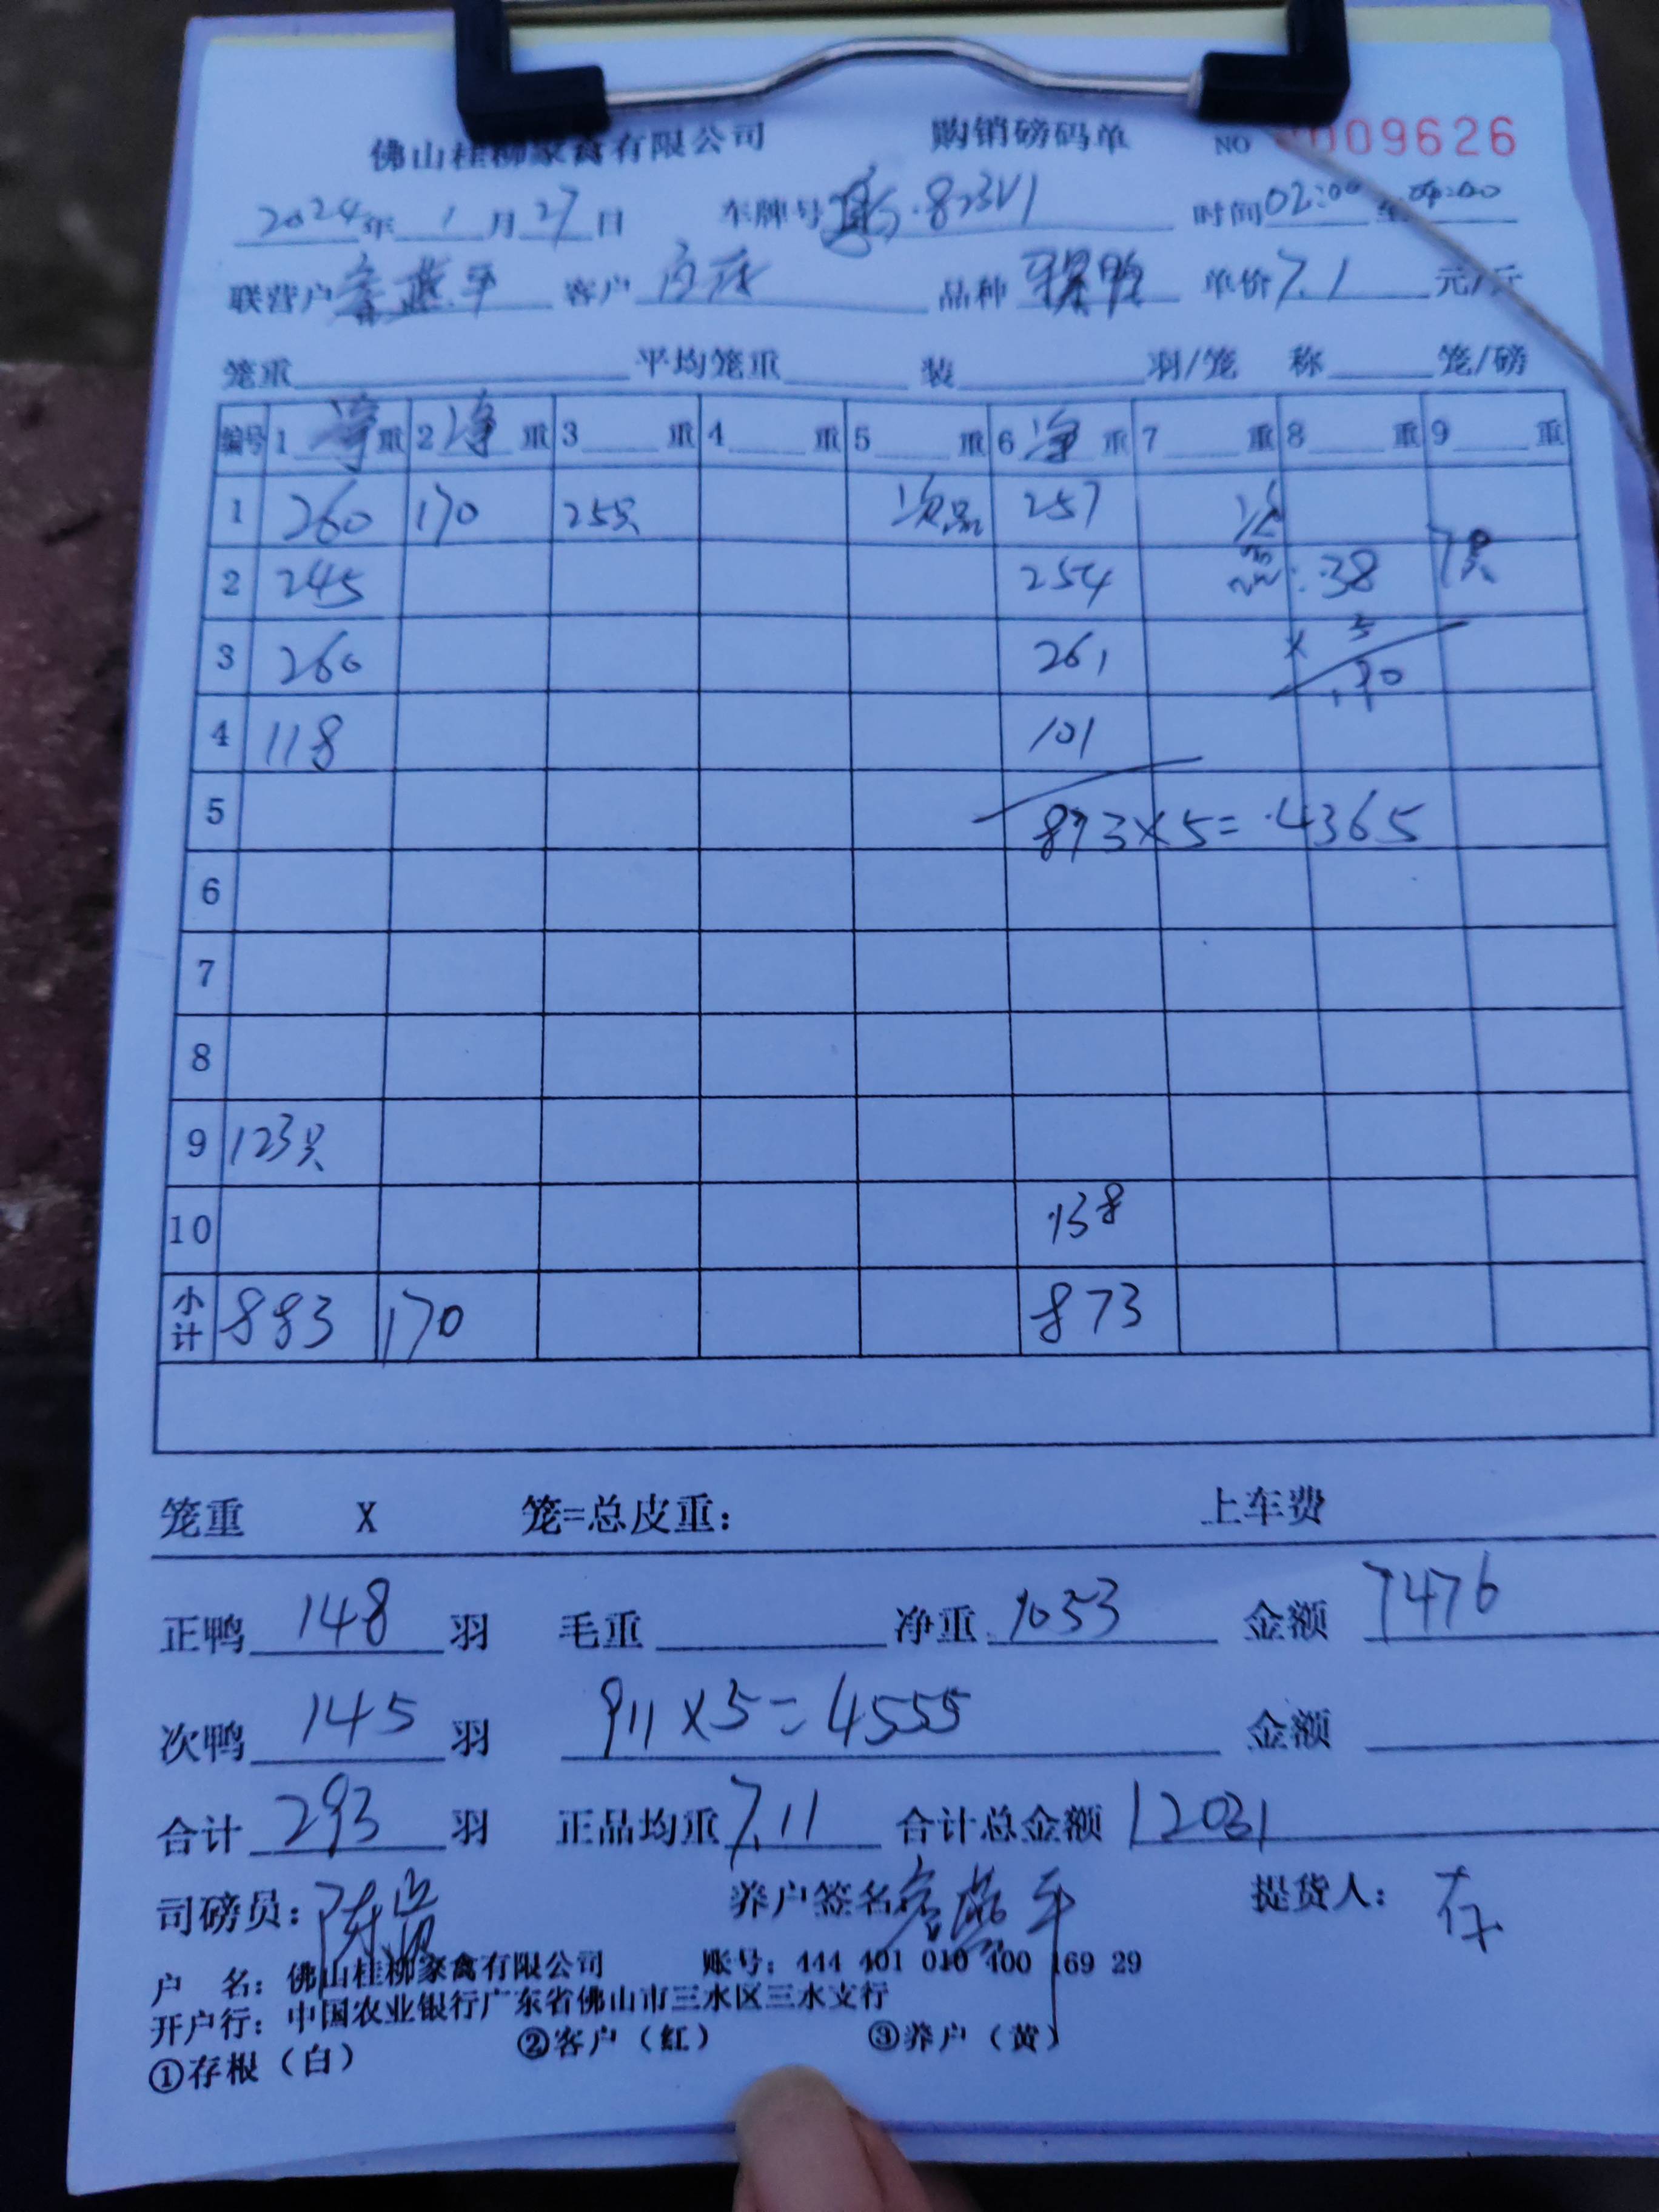 佛山桂柳家禽有限公司 购销磅码单 NO 009626
2024年 1 月 27 日 车牌号 .823V1 时间 02:00 至 04:00
联营户 燕平 客户 品种 单价 7.1 元/斤
笼重 平均笼重 装 羽/笼 称 笼/磅
编号 1 净 重 2 净 重 3 重 4 重 5 重 6 净 重 7 重 8 重 9 重
1 260 170 25只 次品 257 次品
2 245 254 38 7只
3 260 261 × 5
190
4 118 101
5 873×5=4365
6
7
8
9 123只
10 138
小计 883 170 873
笼重 X 笼=总皮重: 上车费
正鸭 148 羽 毛重 净重 1053 金额 7476
次鸭 145 羽 911×5=4555 金额
合计 293 羽 正品均重 7.11 合计总金额 12031
司磅员: 陈 养户签名 燕平 提货人:
户 名: 佛山桂柳家禽有限公司 账号: 444 401 010 400 169 29
开户行: 中国农业银行广东省佛山市三水区三水支行
①存根(白) ②客户(红) ③养户(黄)